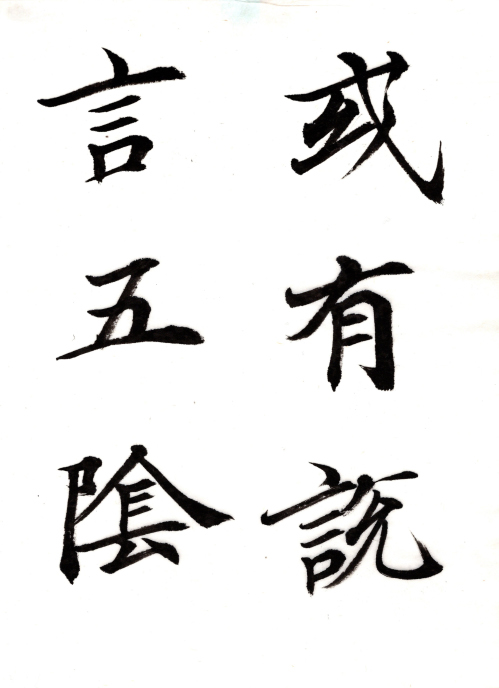 或有説
言五陰